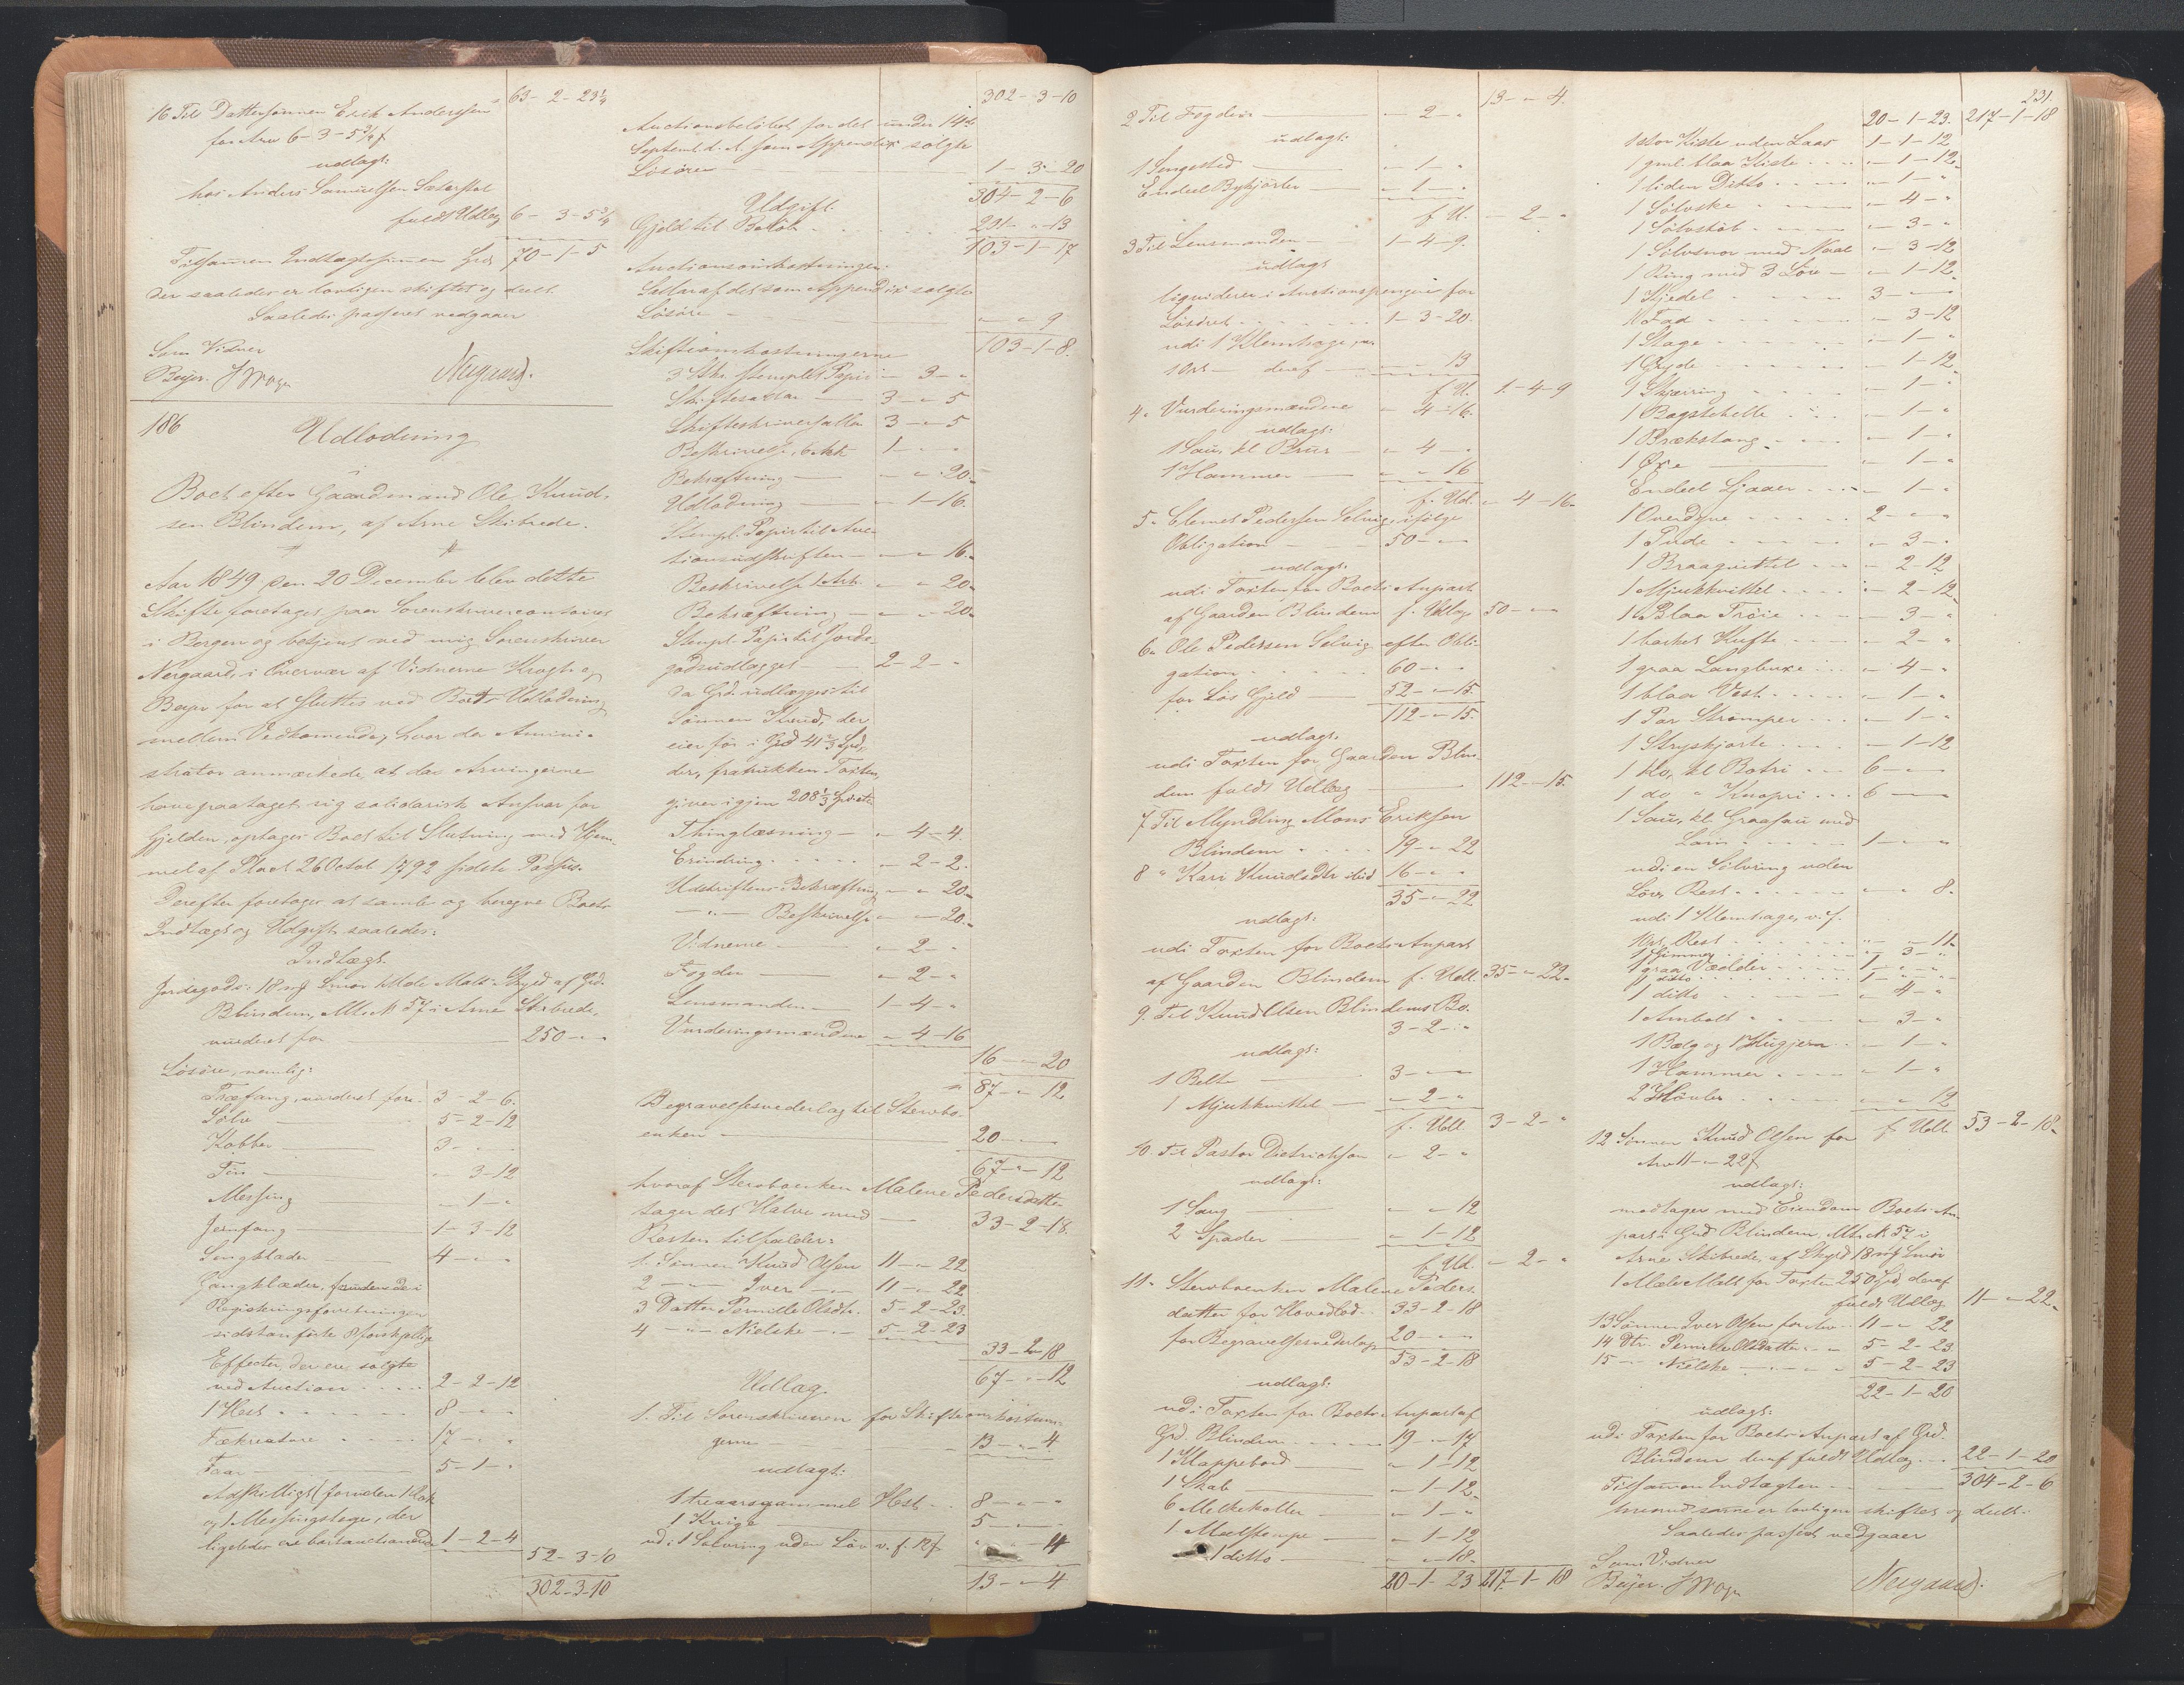 63 - 2 - 23 1/4
16 Til Dattersønnen Erik Anderssen
for Arv 6-3-5 3/4 f
udlagt:
hos Anders Samuelsen Sæterstøl
fuldt Udlæg 6 - 3 - 5 3/4
Tilsammen Indtægtssummen Lig 70 - 1 - 5
der saaledes er lovligen skiftet og deelt.
Saaledes passeret vedgaaer
Som Vidner
Beyer.
Nergaard.
186
Udlodning
i
Boet efter Gaardmand Ole Knud-
sen Blindem, af Arne Skibrede.
Aar 1849, den 20 December blev dette
Skifte foretaget paa Sorenskrivercontoiret
i Bergen og betjent ved mig Sorenskriver
Nergaard, i Overvær af Vidnerne Krogh og
Beyer for at sluttes ved Boets Udlodning
mellem Vedkommende, hvor da Amini-
strator anmærkede, at da Arvingerne
have paataget sig solidarisk Ansvar for
Gjelden, optages Boet til Slutning med Hjem-
mel af Placat 26 Octobr 1792 sidste Passus.
Derefter foretoges at samle og beregne Boets
Indtægt og Udgift saaledes:
Indtægt.
Jordegods: 18 mrk Smør 1 Mele Malt i Skyld af Grd.
Blindem, Mtr. N 57 i Arne Skibrede,
vurderet for 250 - " - "
Løsøre, nemlig:
Træfang, vurderet for 3 - 2 - 6.
Sølv 5 - 2 - 12
Kobber 3 - " - "
Tin " - 3 - 12
Messing " - 1 - "
Jernfang 1 - 3 - 12
Sengklæder 4 - " - "
Gangklæder, foruden de i
Registreringsforretningen
sidstanførte 8 forskjellige
Effecter, der ere solgte
ved Auction 2 - 2 - 12
1 Hest 8 - " - "
Fækreature 17 - " - "
Faar 5 - 1 - "
Adskilligt (foruden 1
og 1 Messingstage, der
ligeledes ere bortauctionerede 1 - 2 - 4
52 - 3 - 10
302 - 3 - 10
302 - 3 - 10
Auctionsbeløbet for det under 14de
Septembr d. A. som Appendix solgte
Løsøre 1 - 3 - 20
304 - 2 - 6
Udgift.
Gjeld til Beløb 201 - " - 13
103 - 1 - 17
Auctionsomkostninger.
Salær af det som Appendix solgte
Løsøre " - " - 9
103 - 1 - 8.
Skifteomkostningerne
3 Stkr stemplet Papir " - 3 - "
Skiftesalær 3 - " - 5
Skifteskriversallar 3 - " - 5
Beskrivelse, 6 Ark 1 - " - "
Bekræftning " - " - 20.
Udlodning " - 1 - 16.
Stempl. Papir til Auc-
tionsudskriften " - " - 16.
Beskrivelse 1 Ark. " - " - 20.
Bekræftning " - " - 20.
Stempl. Papir til Jorde-
godsudlægget 2 - 2 - "
Da Grd. udlægges til
Sønnen Knud, der
eier før i Grd 41 2/3 Spd,
der, fratrukken Taxten,
giver igjen 208 1/3 Spd
Thinglæsning " - 4 - 4.
Erindring " - 2 - 2.
Udskriftens Bekræftning " - " - 20.
— " — Beskrivelse " - " - 20.
Vidnerne " - 2 - "
Fogden " - 2 - "
Lensmanden 1 - 4 - "
Vurderingsmændene " - 4 - 16
16 - " - 20
87 - " - 12
Begravelsesvederlag til Stervbo-
enken 20 - " - "
67 - " - 12
hvoraf Stervboenken Malene Pedersdatter
tager det Halve med 33 - 2 - 18.
Resten tilfalder:
1. Sønnen Knud Olsen 11 - " - 22
2 — " — Iver — " — 11 - " - 22
3 Datter Pernille Olsdtr. 5 - 2 - 23.
4 — " — Nielske — " — 5 - 2 - 23
33 - 2 - 18
67 - " - 12
Udlæg.
1. Til Sorenskriveren for Skifteomkostnin-
gerne 13 - " - 4
udlagt:
1 treaarsgammel Hest 8 - " - "
1 Kvige 5 - " - "
udi 1 Sølvring uden Løv v. f. 12 f " - " - 4
13 - " - 4
13 - " - 4.
2 Til Fogden " - 2 - "
udlagt:
1 Sengested " - 1 - "
Endeel Bykjørler " - 1 - "
f. U. " - 2 - "
3 Til Lensmanden 1 - 4 - 9.
udlagt
liquiderer i Auctionspenger for
Løsøret 1 - 3 - 20.
udi 1 Klemhage, v.
1 Ort deraf " - " - 13
f. U. 1 - 4 - 9
4. Vurderingsmændene " - 4 - 16.
udlagt:
1 Sau, kl. Bruse " - 4 - "
1 Hammer " - " - 16
f. Udl. " - 4 - 16.
5. Clemet Pedersen Selvig ifølge
Obligation 50 - " - "
udlagt:
udi Taxten for Boets Anpart
af Gaarden Blindem f. Udlæg 50 - " - "
6. Ole Pedersen Selvig efter Obli-
gation 60 - " - "
for Løs Gjeld 52 - " - 15.
112 - " - 15.
udlagt.
udi Taxten for Gaarden Blin-
dem fuldt Udlæg 112 - " - 15.
7 Til Myndling Mons Eriksen
Blindem 19 - " - 22
8 " Kari Knudsdtr ibid 16 - " - "
35 - " - 22
udlagt:
udi Taxten for Boets Anpart
af Gaarden Blindem f. Udl. 35 - " - 22.
9. Til Knud Olsen Blindems Bo.
3 - 2 - "
udlagt:
1 Belte 3 - " - "
1 Mjukkvittel " - 2 - "
f. Udl. 3 - 2 - "
10. Til Pastor Dietrichson " - 2 - "
udlagt:
1 Saug " - " - 12
2 Spader " - 1 - 12
f. Ud. " - 2 - "
11. Stervboenken Malene Peders-
datter for Hovedlod 33 - 2 - 18
for Begravelsesvederlag 20 - " - "
53 - 2 - 18
udlagt:
udi Taxten for Boets Anpart af
Grd. Blindem 19 - " - 17
1 Klappebord " - 1 - 12
1 Skab " - 1 - 12.
6 Melkekoller " - 1 - "
1 " - 1 - 12
1 ditto " - " - 18.
20 - 1 - 23 217 - 1 - 18
231.
20 - 1 - 23. 217 - 1 - 18
1 stor Kiste uden Laas 1 - 1 - 12
1 gml. blaa Kiste " - 1 - 12.
1 liden Ditto " - 1 - "
1 Sølvske " - 4 - "
1 Sølvstøb " - 3 - "
1 Sølvsnor med Naal " - 3 - 12
1 Ring med 3 Løv " - 1 - 12.
1 Kjedel 3 - " - "
1 Fad " - 3 - 12
1 Stage " - 1 - "
1 Gryde " - 1 - 12.
1 Skjærring " - 1 - "
1 Bagstehelle " - 1 - "
1 Brækstang " - 1 - "
1 Øxe " - 1 - "
Endeel Ljaaer " - 1 - "
1 Overdyne 2 - " - "
1 Pude " - 3 - "
1 Braagvittel " - 2 - 12
1 Mjukkvittel " - 2 - 12.
1 Blaa Trøie " - 3 - "
1 barket Kufte " - 2 - "
1 graa Langbuxe " - 4 - "
1 blaa Vest " - 1 - "
1 Par Strømper " - 1 - "
1 Stryskjorte " - 1 - 12
1 Ko, kl. Botri 6 - " - "
1 do " Knopri 6 - " - "
1 Sau, kl. Graasau med
Lam 1 - " - "
udi en Sølvring uden
Løv, Rest " - " - 8.
udi 1 Klemhage, v. f.
1 Ort, Rest " - " - 11.
1 Gimmer " - 3 - "
1 graa Vædder 1 - " - "
1 ditto 1 - " - "
1 ditto " - 4 - "
1 Ambolt " - 3 - "
1 Bælg og 1 Hugjern " - 1 - "
1 Hammer " - 1 - "
2 Høvler " - " - 12
f. Udl. 53 - 2 - 18.
12 Sønnen Knud Olsen for
Arv 11 - " - 22 f
udlagt:
modtager med Eiendom Boets An-
part i Grd Blindem, Mtr. N 57 i
Arne Skibrede, af Skyld 18 mrk Smør
1 Mæle Malt for Taxten 250 Spd, deraf
fuldt Udlæg 11 - " - 22.
13 Sønnen Iver Olsen for Arv 11 - " - 22
14 Dtr. Pernille Olsdatter 5 - 2 - 23
15 — " — Nielske — " — 5 - 2 - 23
22 - 1 - 20
udlagt:
udi Taxten for Boets Anpart af Grd.
Blindem deraf fuldt Udlæg 22 - 1 - 20
Tilsammen Indtægten 304 - 2 - 6
hvormed samme er lovligen skiftet og deelt.
Saaledes passeret vedgaaer
Som Vidner
Beyer.
Nergaard.